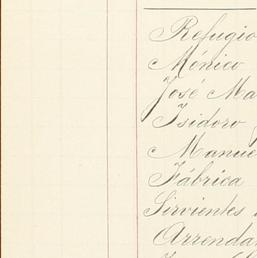 Refugio
Mónico
José Ma
Isidoro
Manue
Fábrica
Sirvientes
Arrenda